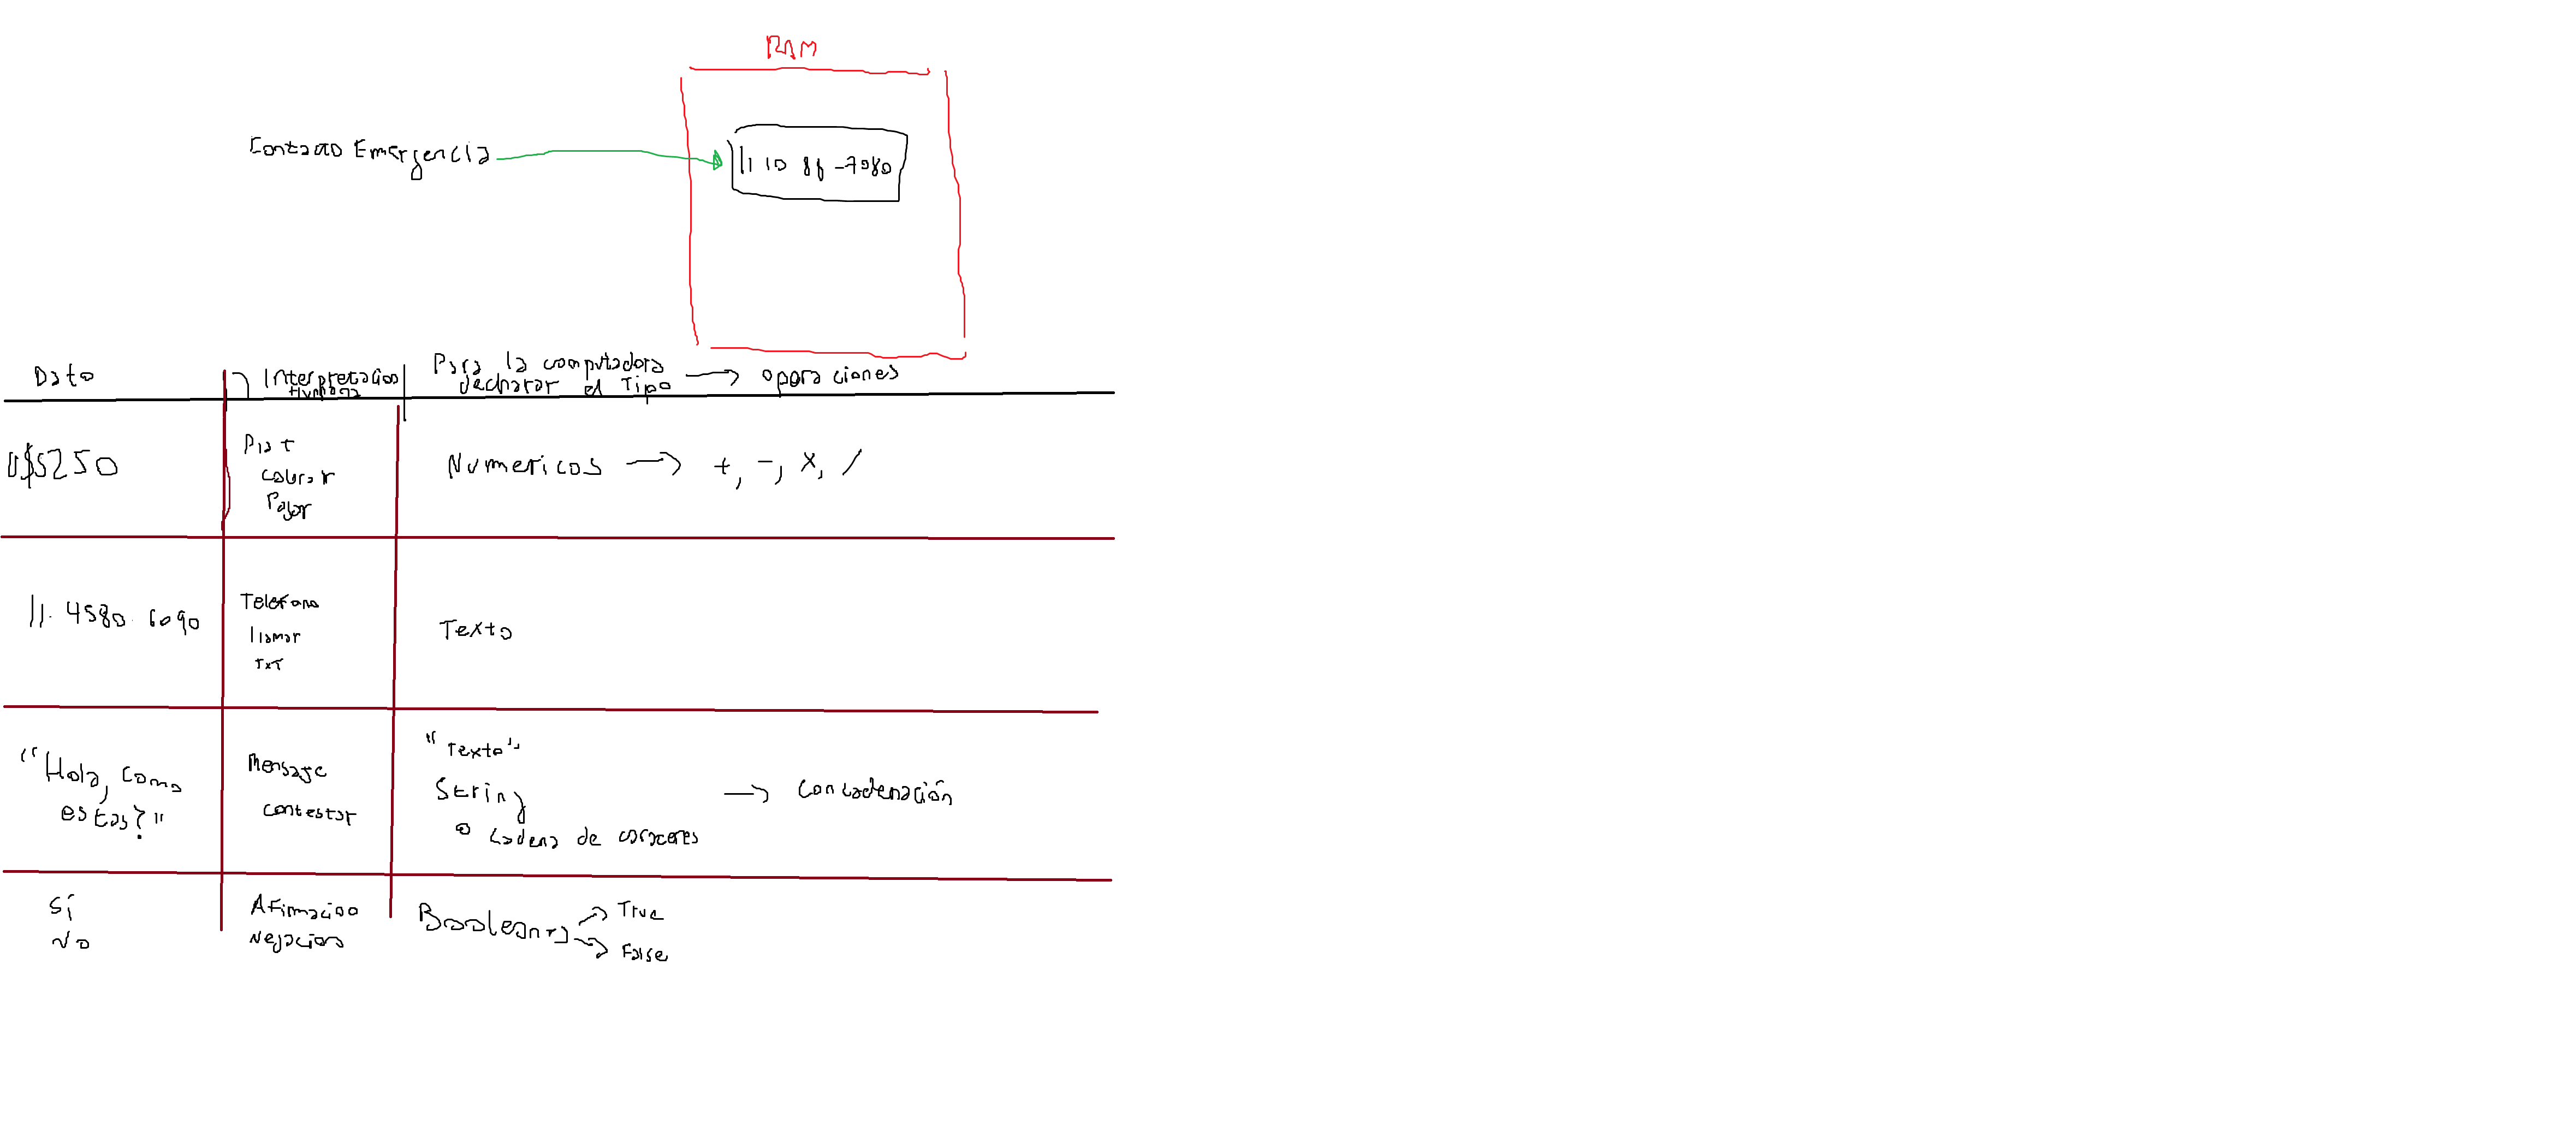 RAM
Contacto Emergencia
11 10 88 -7080
Dato
Interpretacion
Humana
Para la computadora
declarar el Tipo
operaciones
U$S250
Plat
cobrar
Pagar
Numericos
+, -, x, /
11. 4580. 6090
Telefono
llamar
TXT
Texto
"Hola, Como
estas?"
Mensaje
contestar
"Texto"
String
o Cadena de caracteres
Concadenación
Sí
No
Afirmacion
Negacion
Booleano
True
False